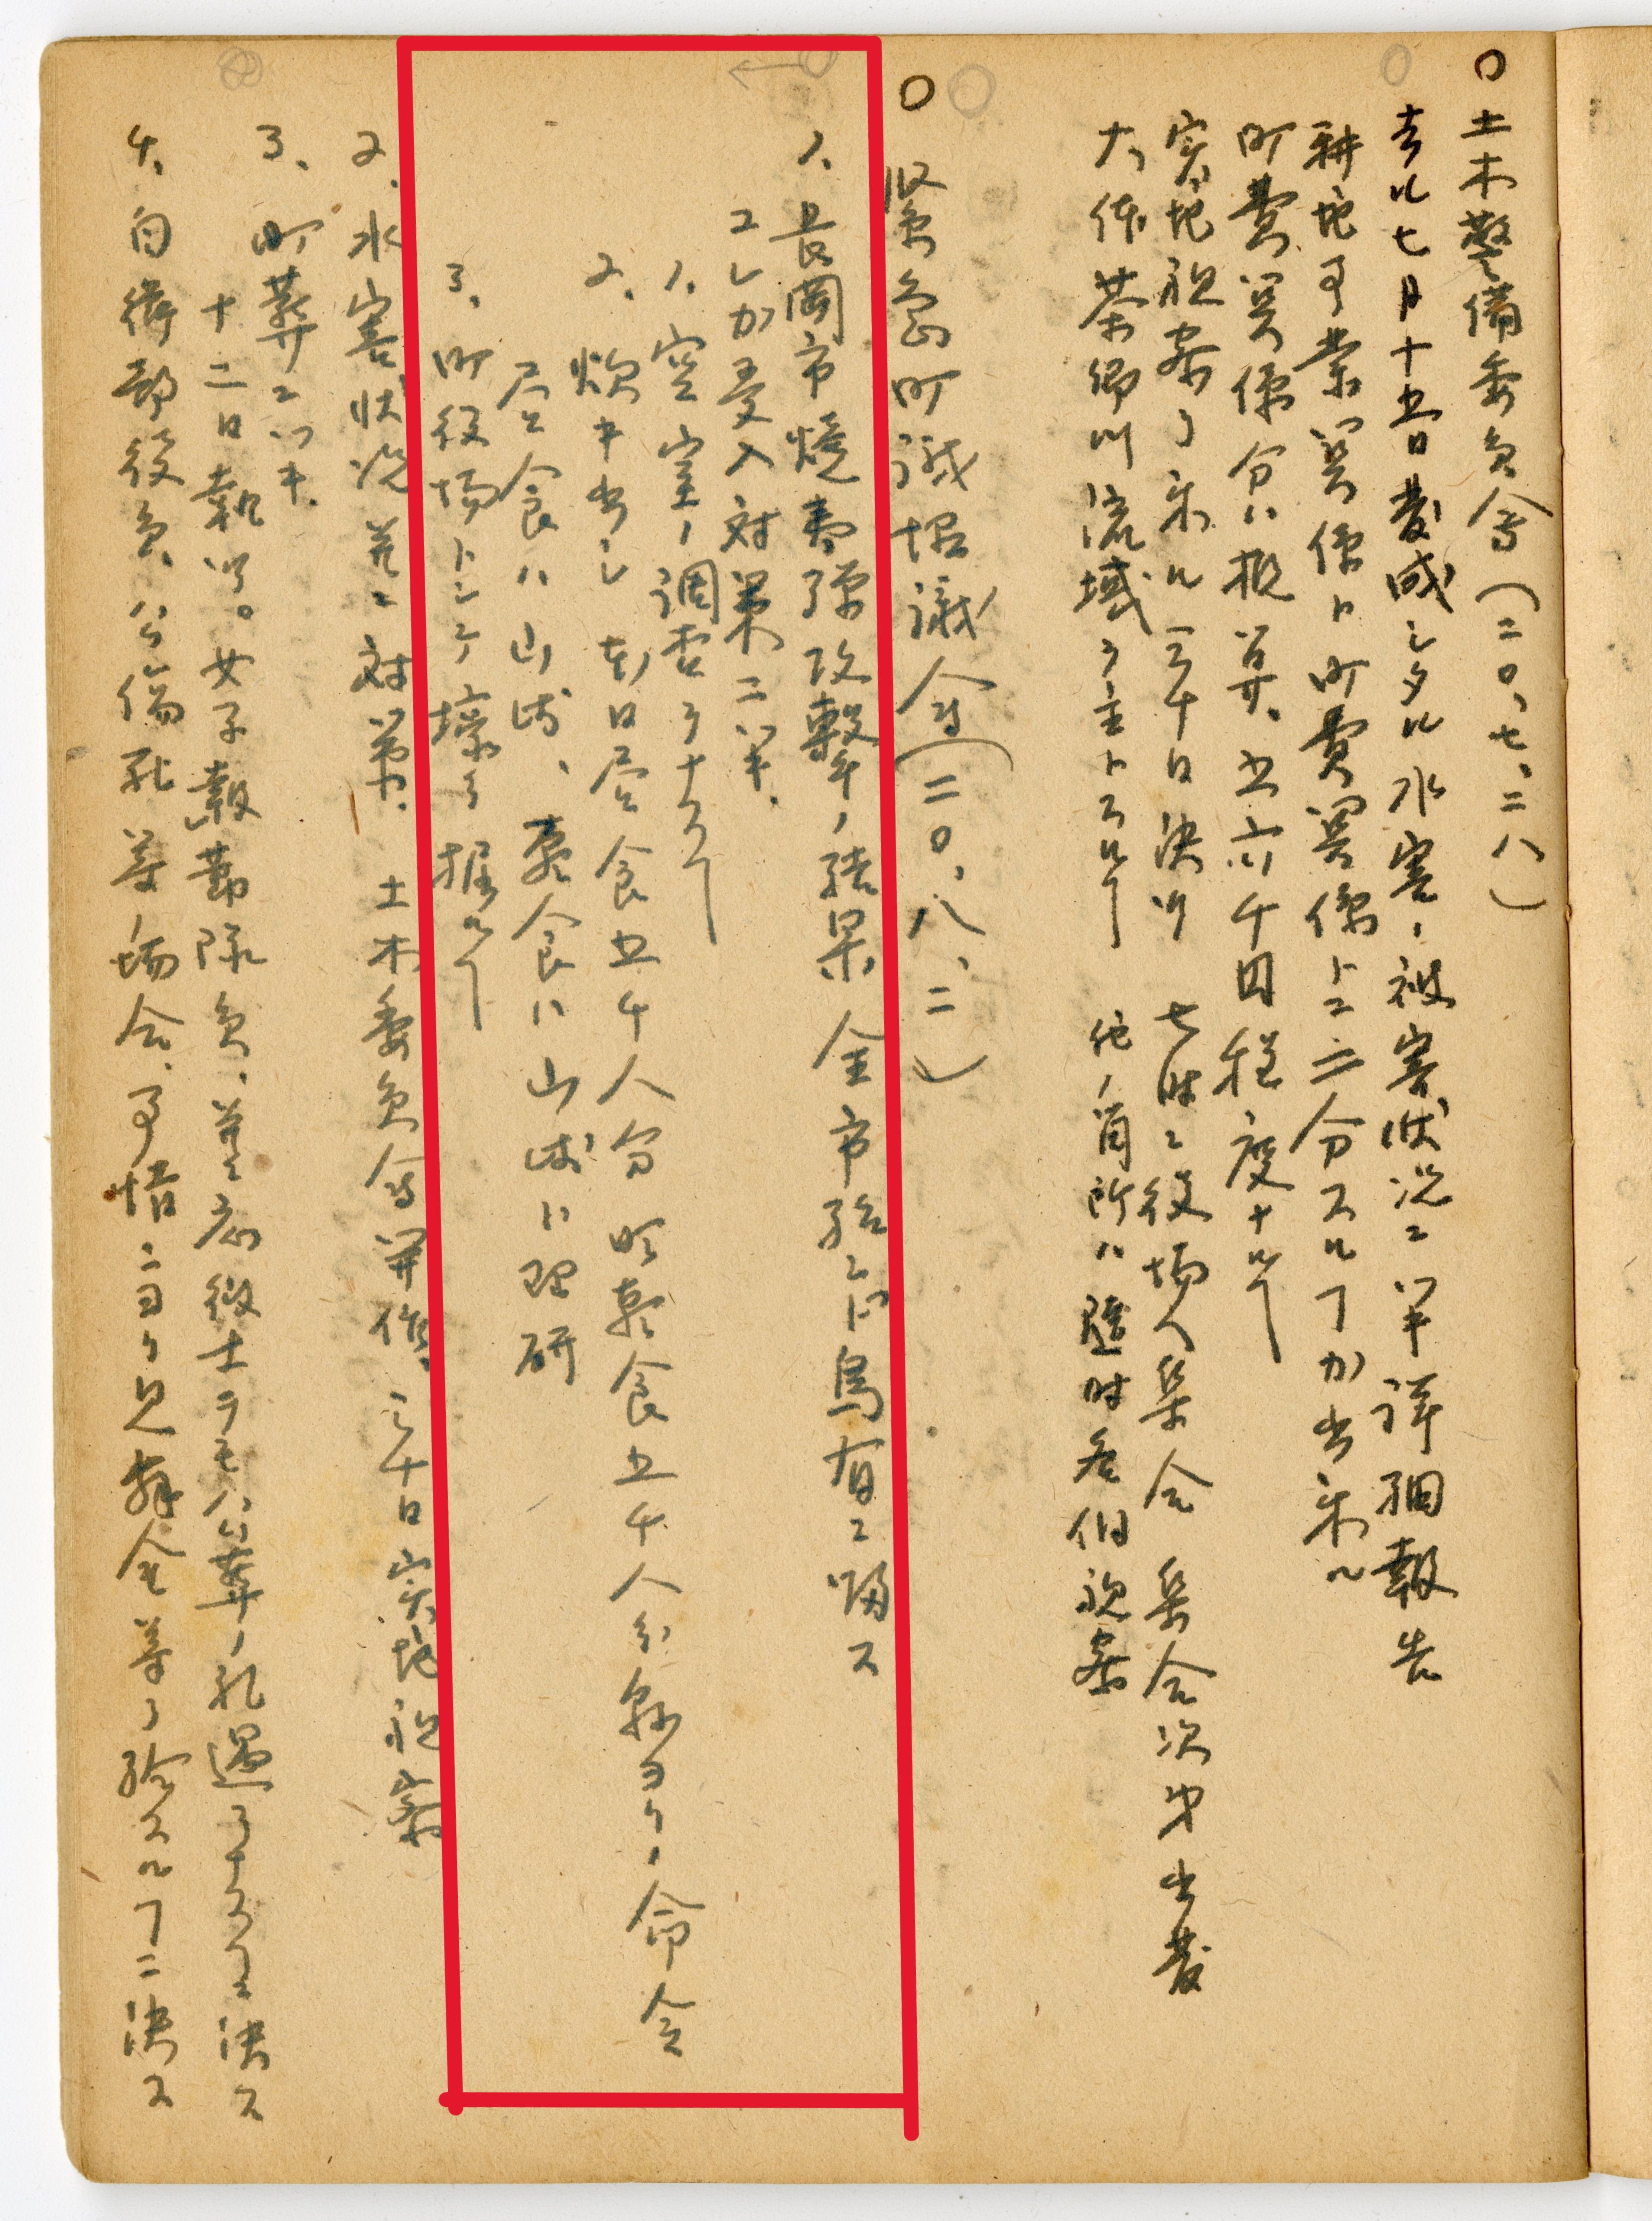 〇土木警備委員会(二〇、七、二八)
去ル七月十五日発成シタル水害ノ被害状況ニツキ詳細報告
耕地事業関係ト町費関係トニ二分スルヿガ出来ル
町費関係分ハ概算、五六千円程度ナルヿ
実地視察ヲ来ル三十日決行 七時ニ役場へ集合 集合次第出発
大体茶郷川流域ヲ主トスルヿ 他ノ箇所ハ臨時各個視察
〇緊急町議協議会(二〇、八、二)
1、長岡市焼夷弾攻撃ノ結果 全市殆ンド烏有ニ帰ス
コレガ受入対策ニツキ、
1、空室ノ調査ヲナスヿ
2、焚キ出シ 本日昼食五千人分 昨夕食五千人分県ヨリノ命令
昼食ハ山崎、夕食ハ山崎ト理研
3、町役場トシテ壕ヲ掘ルヿ
2、水害状況並ニ対策、土木委員会開催、三十日実地視察
3、町葬ニツキ、
十二日執行。女子報勤隊員、並ニ応徴士ヲモ公葬ノ礼遇ヲナスヿニ決ス
4、自衛部役員、公傷死等ノ場合、事情ニヨリ見舞金等ヲ給スルヿニ決ス